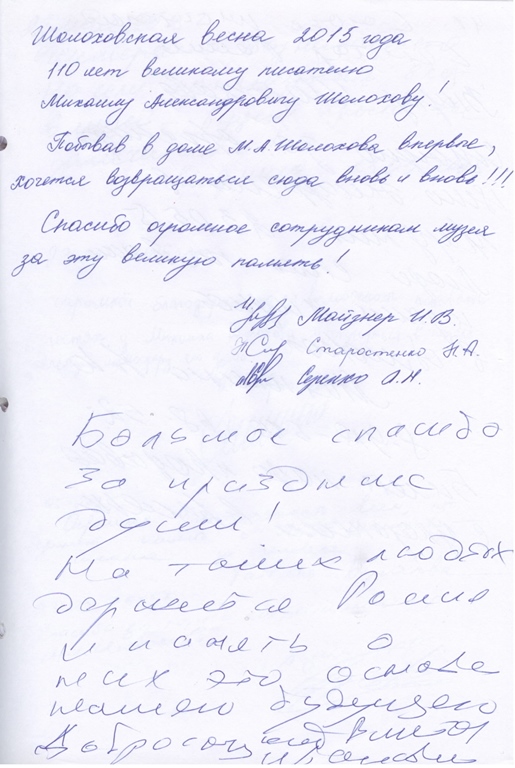 Шолоховская весна 2015 года
110 лет великому писателю
Михаилу Александровичу Шолохову!
Побывав в доме М.А Шолохова впервые,
хочется возвращаться сюда вновь и вновь!!!
Спасибо огромное сотрудникам музея
за эту великую память!
Майднер И.В.
Старостенко Н.А.
Серенко А.Н.
Большое спасибо
за праздник
души!
На таких людях
держится Россия
и память о
них это основа
нашего будущего